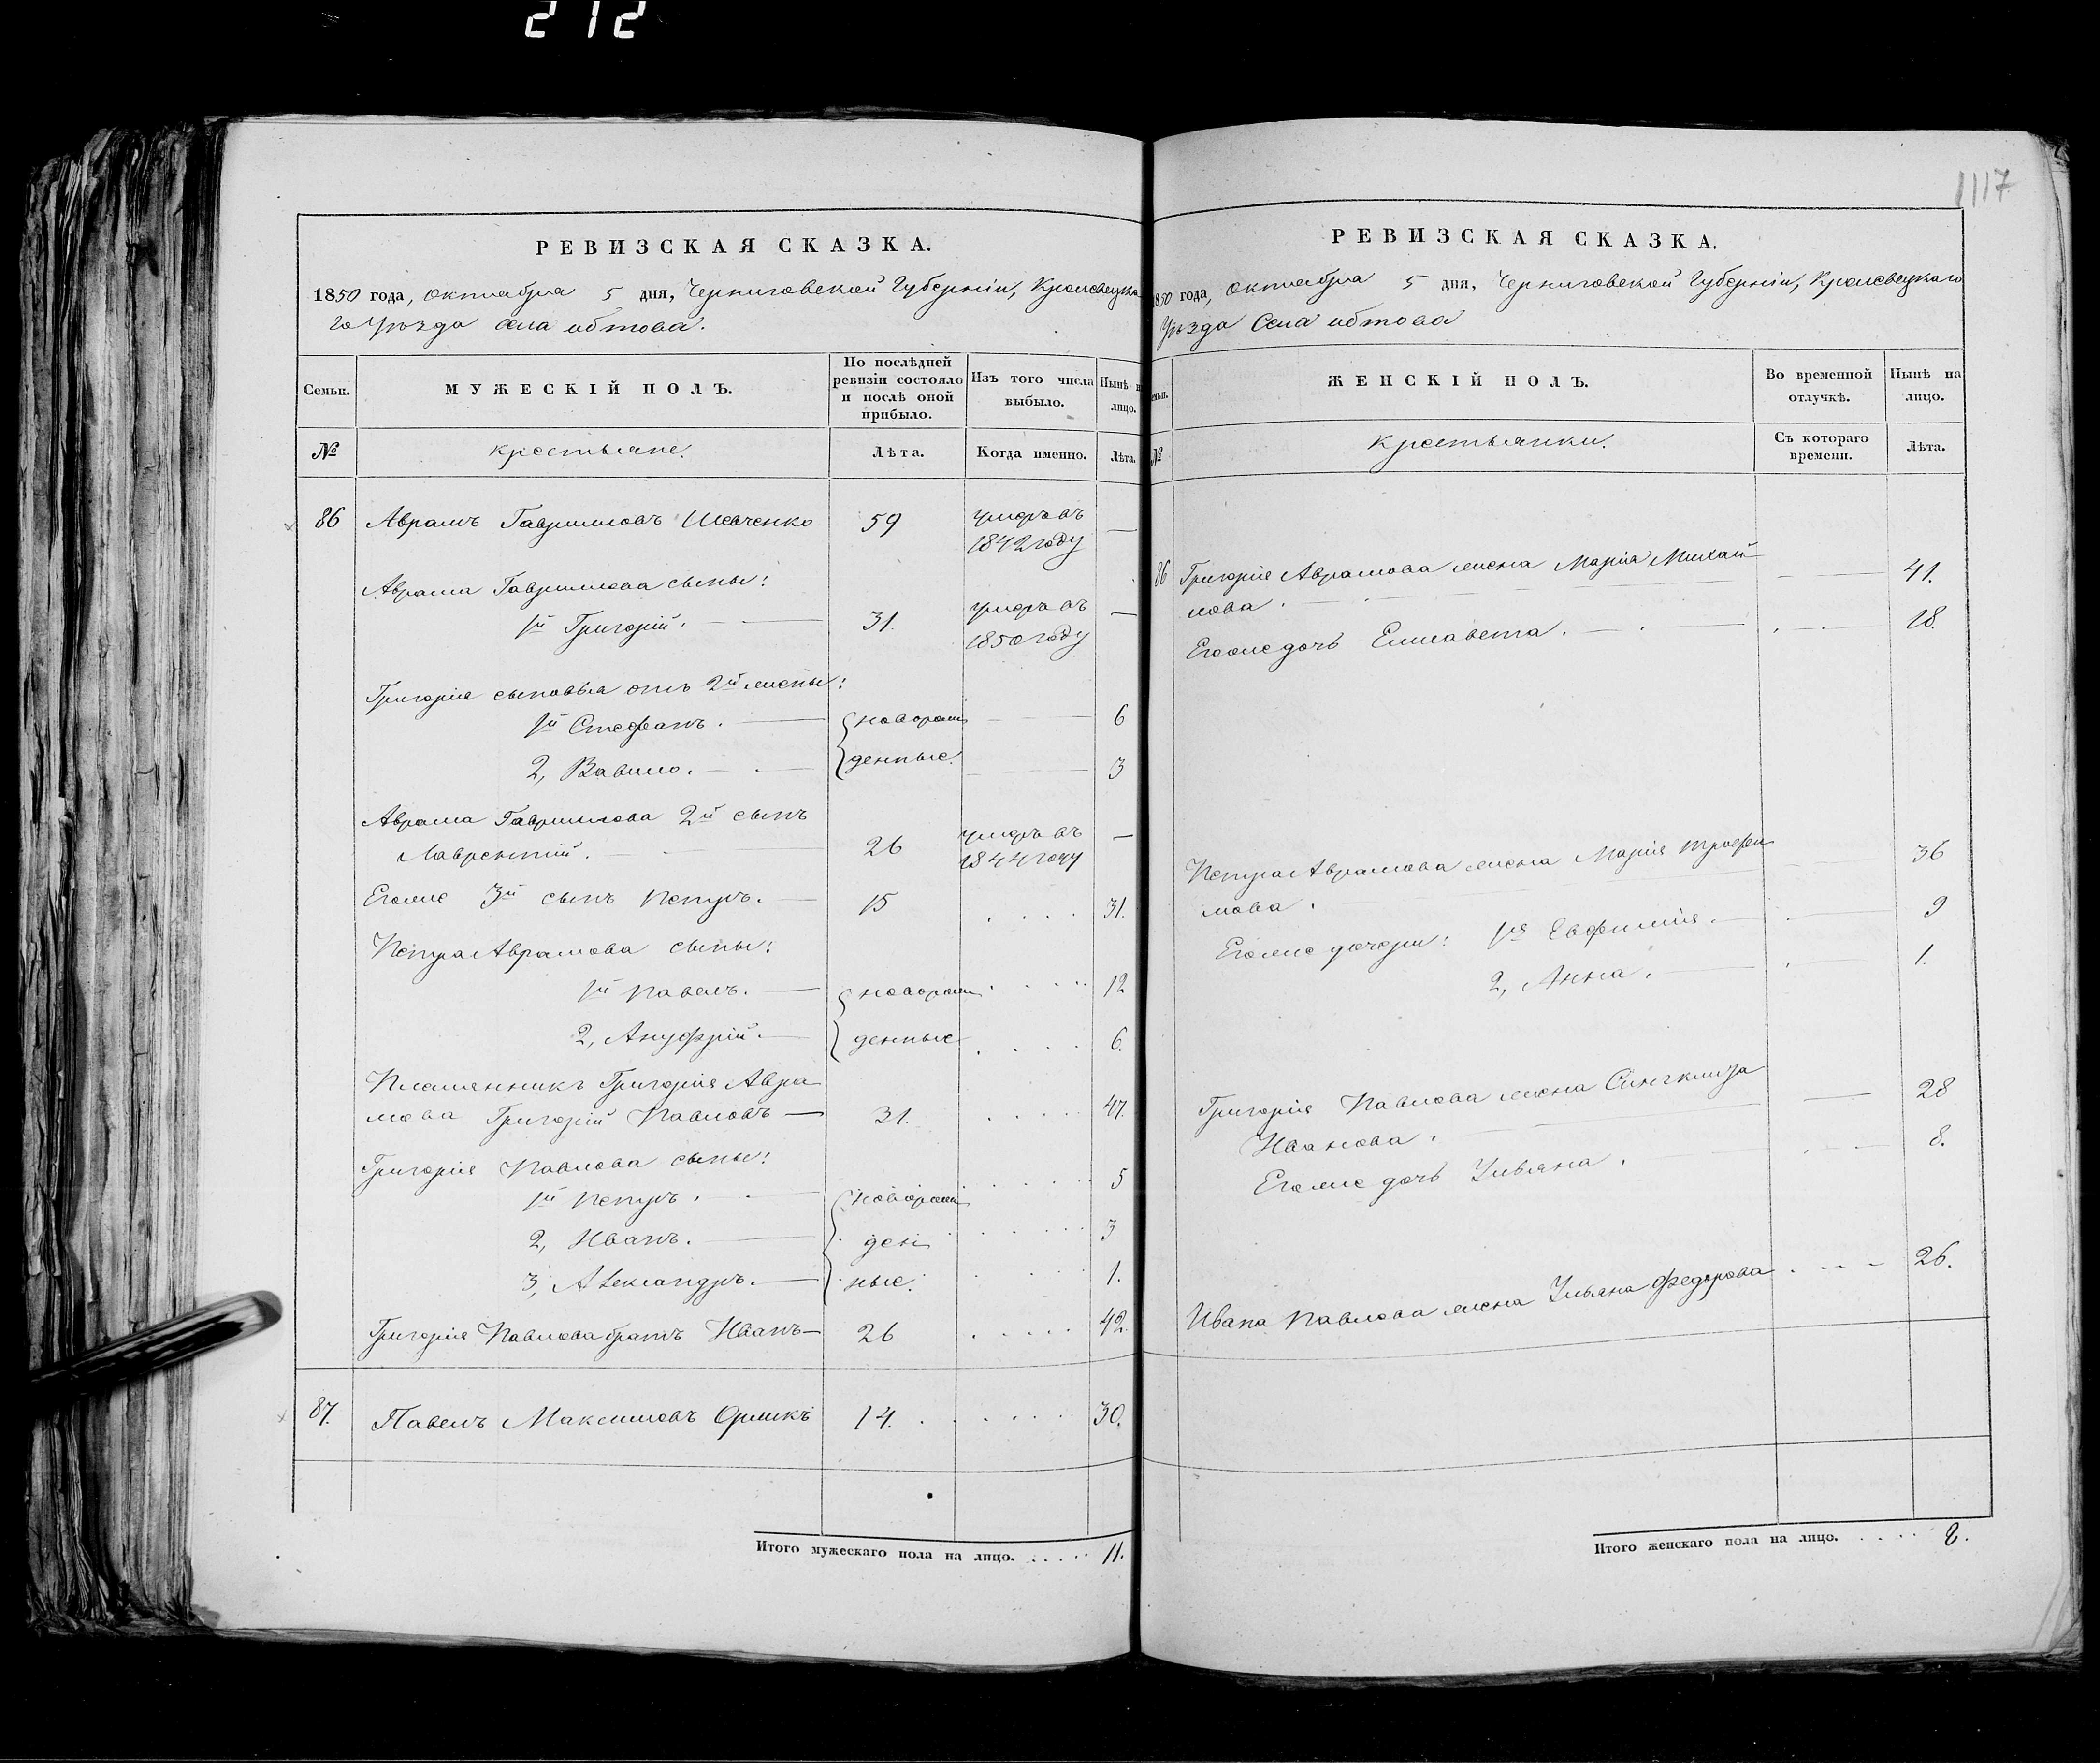 212
1117
РЕВИЗСКАЯ СКАЗКА.
1850 года, октября 5 дня, Черниговской Губерніи, Кролевецка
го Уѣзда села обтова.
Семьи.
МУЖЕСКІЙ ПОЛЪ.
По послѣдней
ревизіи состояло
и послѣ оной
прибыло.
Изъ того числа
выбыло.
Нынѣ н
лицо.
№
крестьяне.
Лѣта.
Когда именно.
Лѣта.
86 Аврамъ Гавриловъ Шевченко 59 умеръ въ —
1842 году
Аврама Гаврилова сыны:
1й Григорій. 31. умеръ въ —
1850 году
Григорія сыновья отъ 2й жены:
1й Стефанъ. новорож 6
2, Вавило. денные. 3
Аврама Гаврилова 2й сынъ
Лаврентій. 26 умеръ въ —
1844 году
Егоже 3й сынъ Петръ. 15 31.
Петра Аврамова сыны:
1й Павелъ. новорож 12
2, Ануфрій. денные 6.
Племянникъ Григорія Авра
мова Григорій Павловъ 31. 47.
Григорія Павлова сыны:
1й Петръ. новорож 5
2, Иванъ. ден 3
3, Александръ. ные. 1.
Григорія Павлова братъ Иванъ 26 42.
87. Павелъ Максимовъ Орликъ 14. 30.
Итого мужескаго пола на лицо. 11.
РЕВИЗСКАЯ СКАЗКА.
1850 года, октября 5 дня, Черниговской Губерніи, Кролевецкаго
Уѣзда Села обтова
емьи.
ЖЕНСКІЙ ПОЛЪ.
Во временной
отлучкѣ.
Нынѣ на
лицо.
№
крестьянки.
Съ котораго
времени.
Лѣта.
86 Григорія Аврамова жена Марія Михай
лова. 41.
Егоже дочь Елисавета. 18.
Петра Аврамова жена Марія трофи
мова. 36
Егоже дочери: 1я Евфимія. 9
2, Анна. 1.
Григорія Павлова жена Синклита
Иванова. 28
Егоже дочь Ульяна. 8.
Ивана Павлова жена Ульяна Федорова 26.
Итого женскаго пола на лицо. 8.